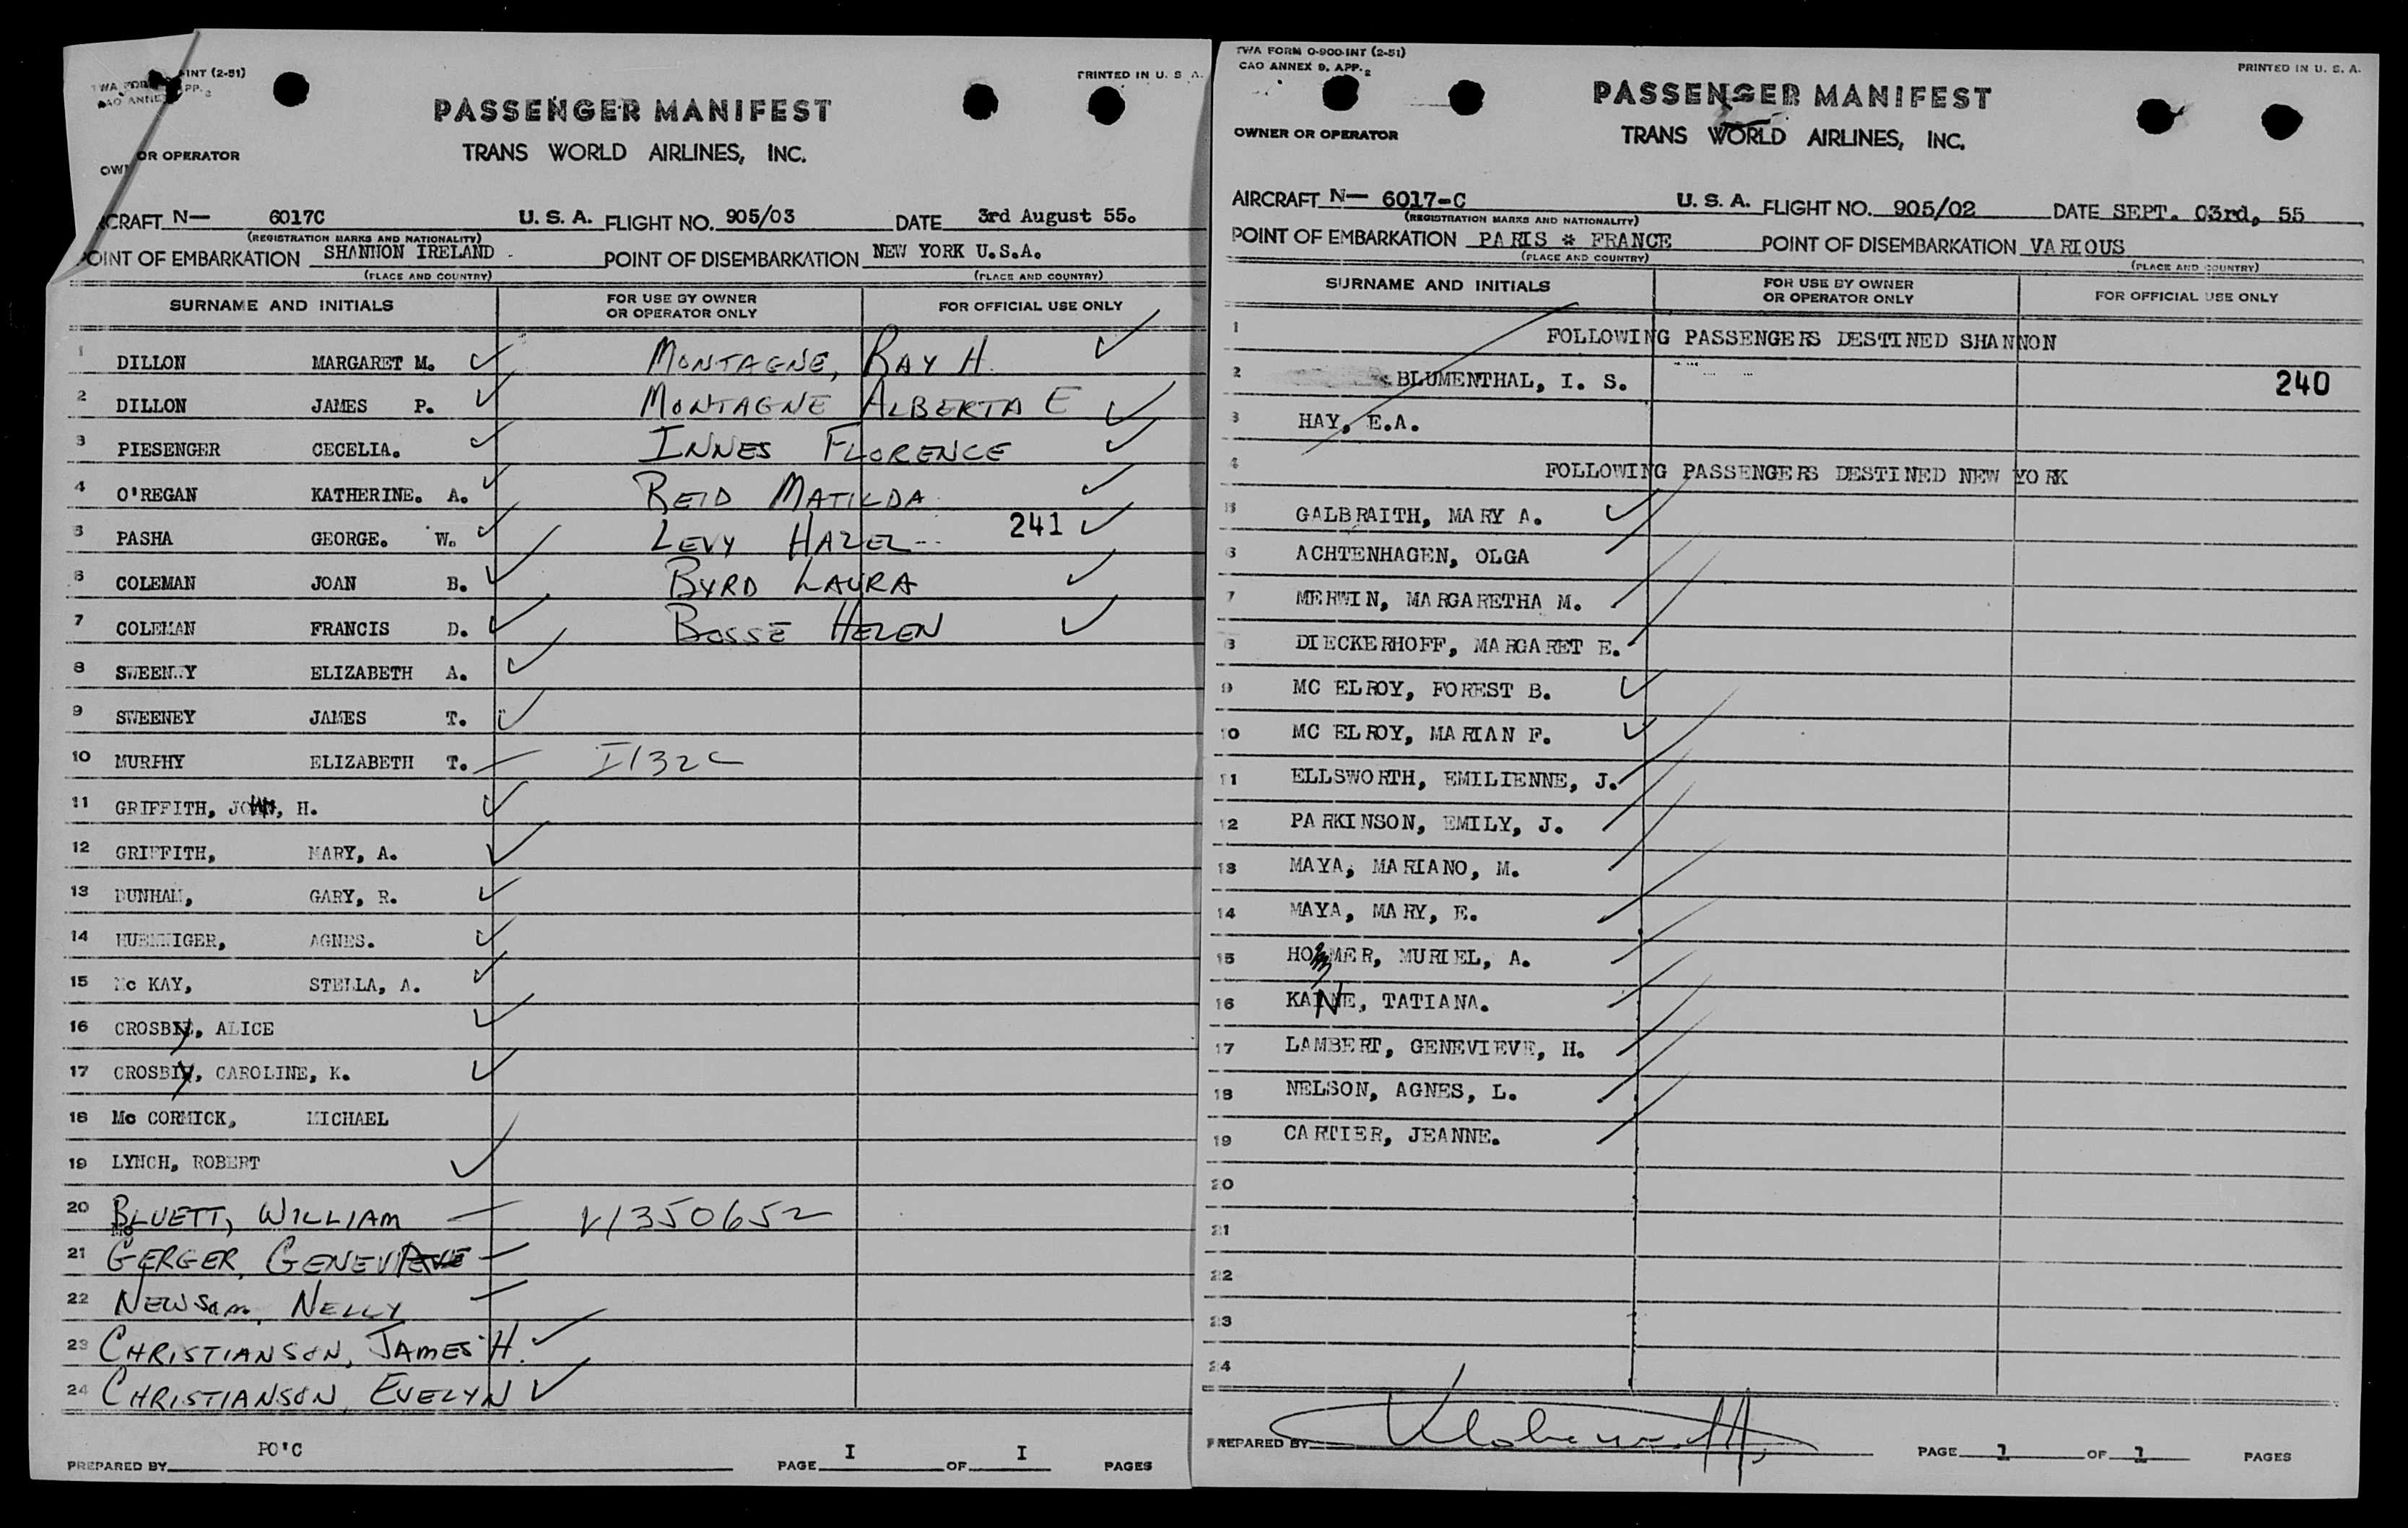 INT (2-51)
PRINTED IN U. S. A.
PASSENGER MANIFEST
TRANS WORLD AIRLINES, INC.
OR OPERATOR
CRAFT N— 6017C U. S. A. FLIGHT NO. 905/03 DATE 3rd August 55.
(REGISTRATION MARKS AND NATIONALITY)
POINT OF EMBARKATION SHANNON IRELAND POINT OF DISEMBARKATION NEW YORK U.S.A.
(PLACE AND COUNTRY) (PLACE AND COUNTRY)
SURNAME AND INITIALS FOR USE BY OWNER OR OPERATOR ONLY FOR OFFICIAL USE ONLY
1 DILLON MARGARET M. ✓ MONTAGNE, RAY H. ✓
2 DILLON JAMES P. ✓ MONTAGNE ALBERTA E ✓
3 PIESENGER CECELIA. ✓ INNES FLORENCE ✓
4 O'REGAN KATHERINE. A. ✓ REID MATILDA ✓
5 PASHA GEORGE. W. ✓ LEVY HAZEL 241 ✓
6 COLEMAN JOAN B. ✓ BYRD LAURA ✓
7 COLEMAN FRANCIS D. ✓ BOSSE HELEN ✓
8 SWEENEY ELIZABETH A. ✓
9 SWEENEY JAMES T. ✓
10 MURPHY ELIZABETH T. — I132C
11 GRIFFITH, JOHN, H. ✓
12 GRIFFITH, MARY, A. ✓
13 DUNHAM, GARY, R. ✓
14 AGNES. ✓
15 Mc KAY, STELLA, A. ✓
16 CROSBY, ALICE ✓
17 CROSBY, CAROLINE, K. ✓
18 Mc CORMICK, MICHAEL
19 LYNCH, ROBERT ✓
20 BLUETT, WILLIAM — V1350652
21 GERGER, GENEVIEVE —
22 NEWSAM, NELLY —
23 CHRISTIANSON, JAMES H. ✓
24 CHRISTIANSON, EVELYN ✓
PREPARED BY PO'C PAGE I OF I PAGES
TWA FORM O-900-INT (2-51)
CAO ANNEX 9, APP. 2
PRINTED IN U. S. A.
PASSENGER MANIFEST
OWNER OR OPERATOR
TRANS WORLD AIRLINES, INC.
AIRCRAFT N— 6017-C U. S. A. FLIGHT NO. 905/02 DATE SEPT. 03rd, 55
(REGISTRATION MARKS AND NATIONALITY)
POINT OF EMBARKATION PARIS * FRANCE POINT OF DISEMBARKATION VARIOUS
(PLACE AND COUNTRY) (PLACE AND COUNTRY)
SURNAME AND INITIALS FOR USE BY OWNER OR OPERATOR ONLY FOR OFFICIAL USE ONLY
1 FOLLOWING PASSENGERS DESTINED SHANNON
2 BLUMENTHAL, I. S. 240
3 HAY, E.A.
4 FOLLOWING PASSENGERS DESTINED NEW YORK
5 GALBRAITH, MARY A. ✓
6 ACHTENHAGEN, OLGA
7 MERWIN, MARGARETHA M.
8 DIECKERHOFF, MARGARET E.
9 MC ELROY, FOREST B. ✓
10 MC ELROY, MARIAN F. ✓
11 ELLSWORTH, EMILIENNE, J.
12 PARKINSON, EMILY, J.
13 MAYA, MARIANO, M.
14 MAYA, MARY, E.
15 HOMMER, MURIEL, A.
16 KANNE, TATIANA.
17 LAMBERT, GENEVIEVE, H.
18 NELSON, AGNES, L.
19 CARTIER, JEANNE.
20
21
22
23
24
PREPARED BY PAGE 1 OF 1 PAGES